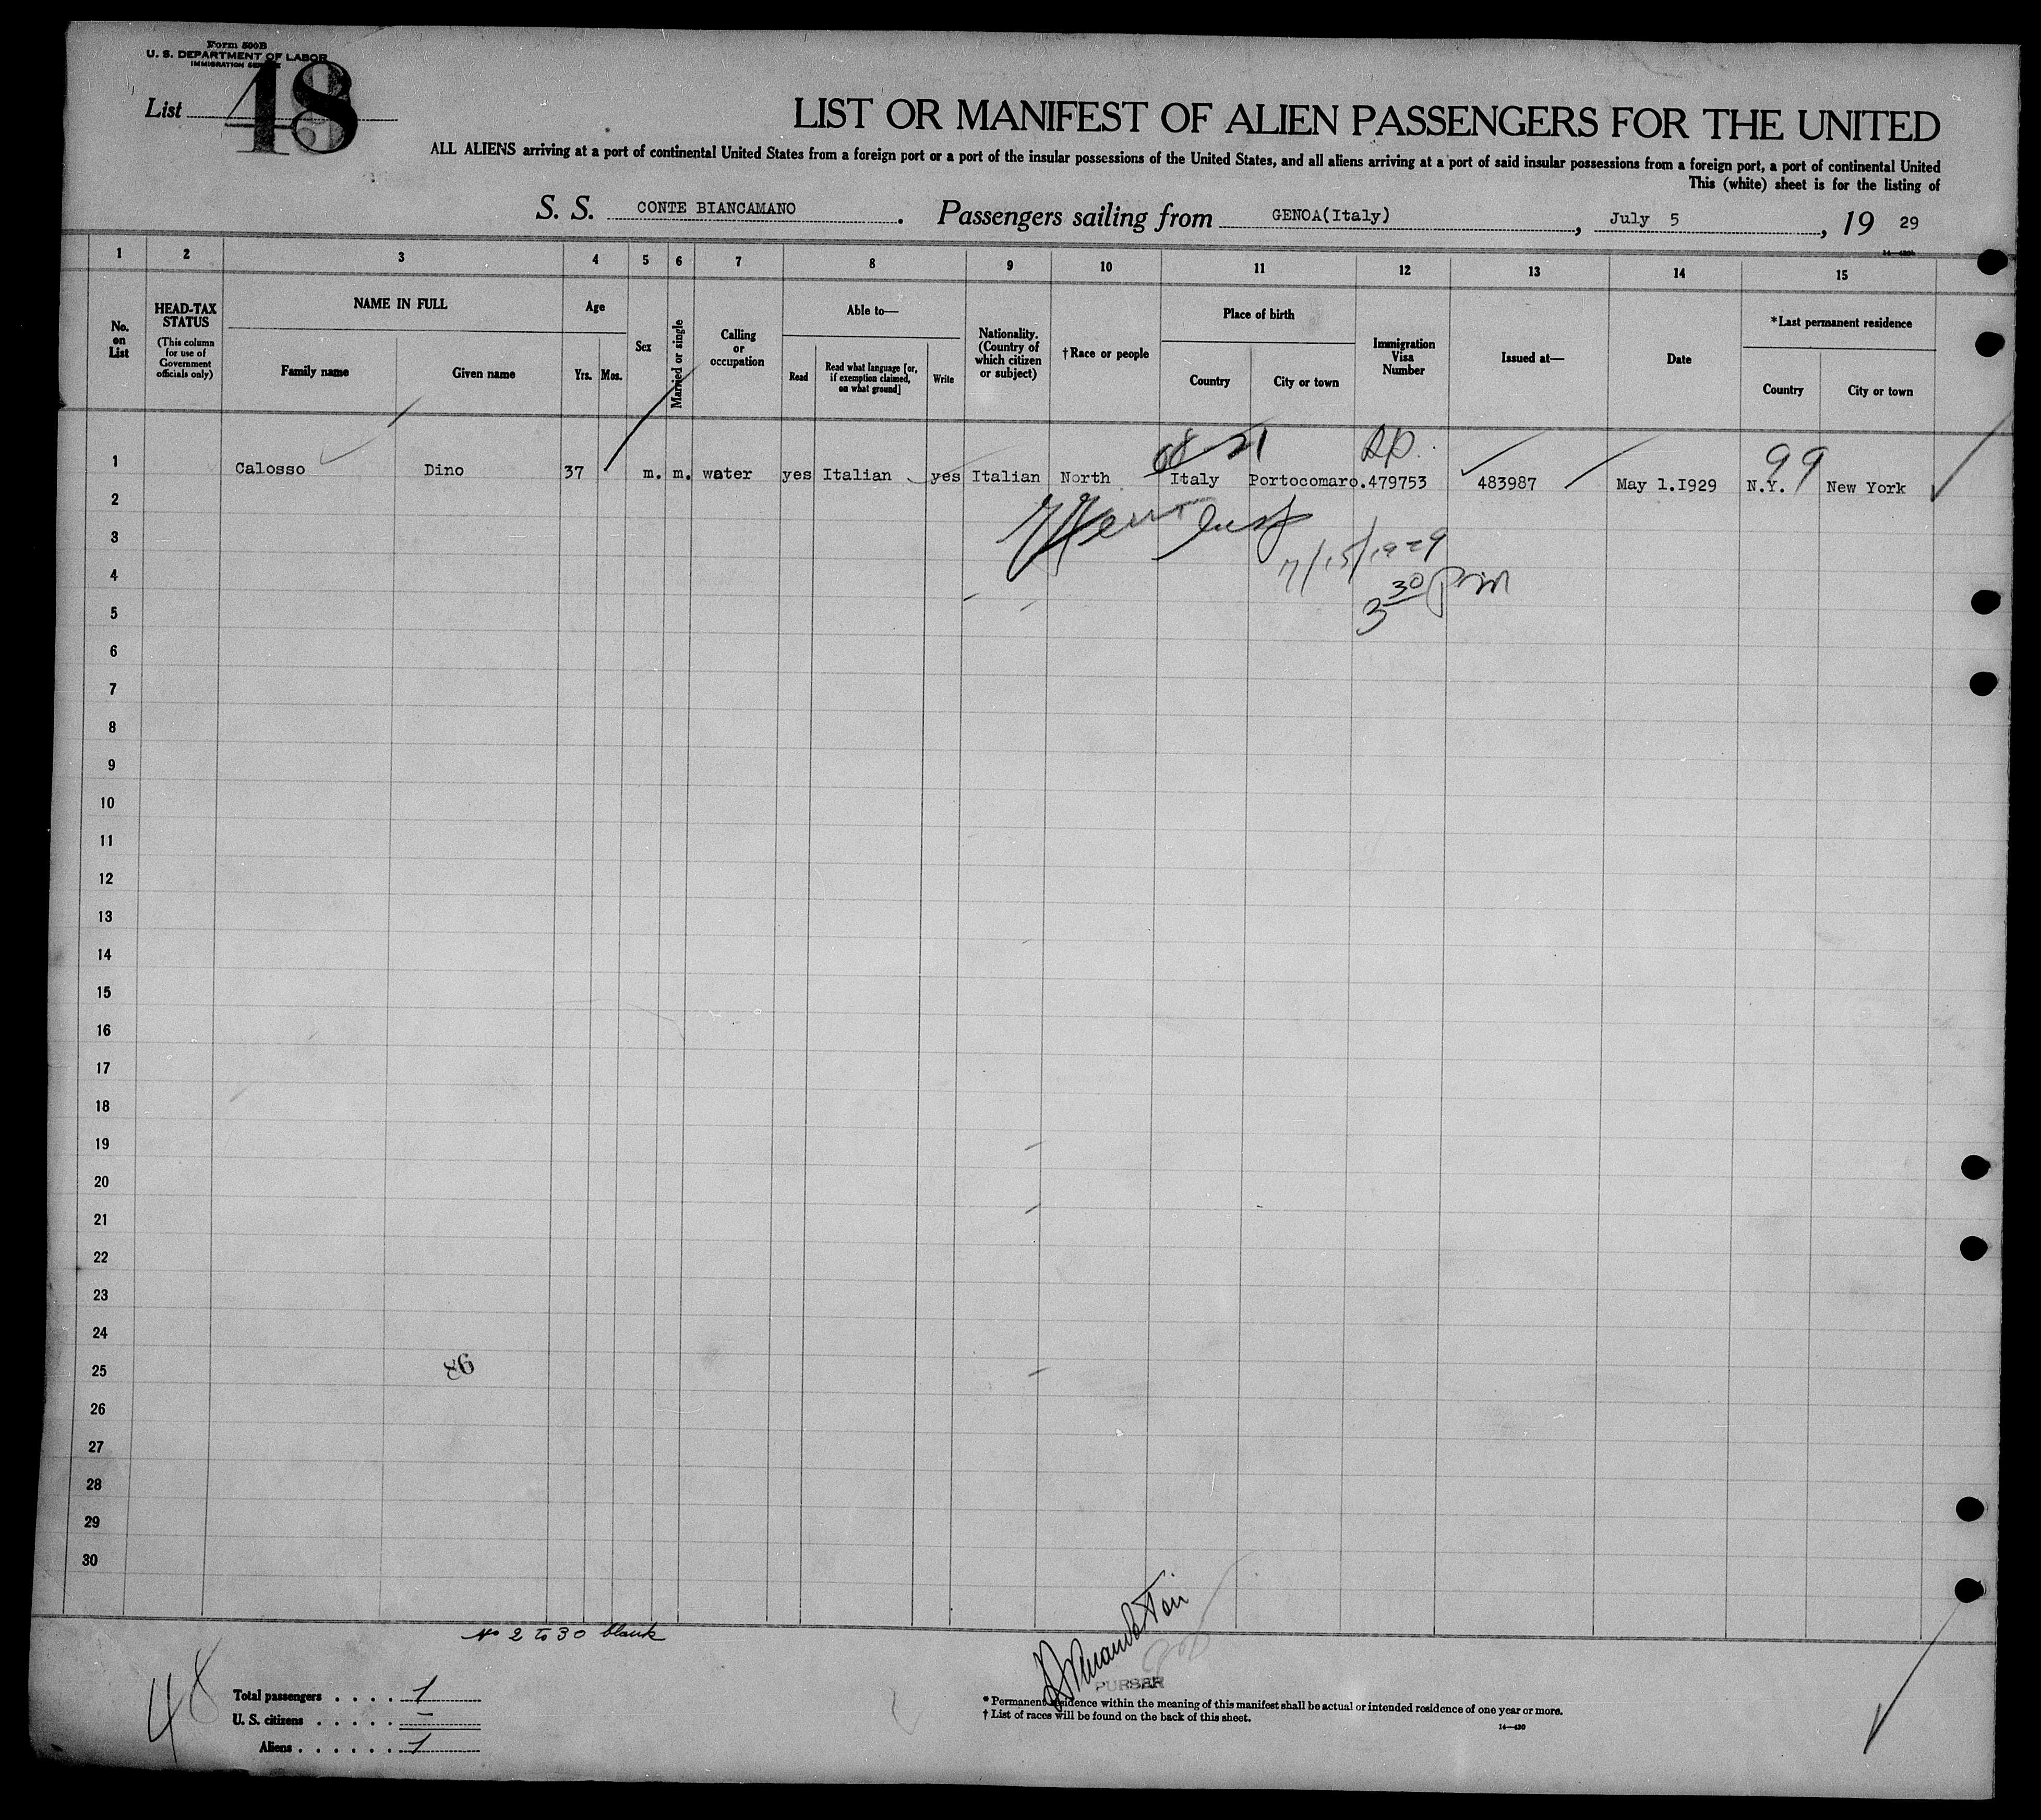 Form 500B
U. S. DEPARTMENT OF LABOR
IMMIGRATION SERVICE
List 48
LIST OR MANIFEST OF ALIEN PASSENGERS FOR THE UNITED
ALL ALIENS arriving at a port of continental United States from a foreign port or a port of the insular possessions of the United States, and all aliens arriving at a port of said insular possessions from a foreign port, a port of continental United
This (white) sheet is for the listing of
S. S. CONTE BIANCAMANO. Passengers sailing from GENOA(Italy), July 5, 19 29
14—430b
1 2 3 4 5 6 7 8 9 10 11 12 13 14 15
No. on List
HEAD-TAX STATUS
(This column for use of Government officials only)
NAME IN FULL
Family name
Given name
Age
Yrs. Mos.
Sex
Married or single
Calling or occupation
Able to—
Read
Read what language [or, if exemption claimed, on what ground]
Write
Nationality. (Country of which citizen or subject)
†Race or people
Place of birth
Country
City or town
Immigration Visa Number
Issued at—
Date
*Last permanent residence
Country
City or town
R.P.
99
1 Calosso Dino 37 m. m. water yes Italian yes Italian North Italy Portocomaro. 479753 483987 May 1.1929 N.Y. New York
2
3
7/15/1929
4
3 30 pm
5
6
7
8
9
10
11
12
13
14
15
16
17
18
19
20
21
22
23
24
25 86
26
27
28
29
30
No 2 to 30 blank
48
Total passengers . . . . 1
U. S. citizens . . . . . –
Aliens . . . . . . 1
PURSER
* Permanent residence within the meaning of this manifest shall be actual or intended residence of one year or more.
† List of races will be found on the back of this sheet.
14—430